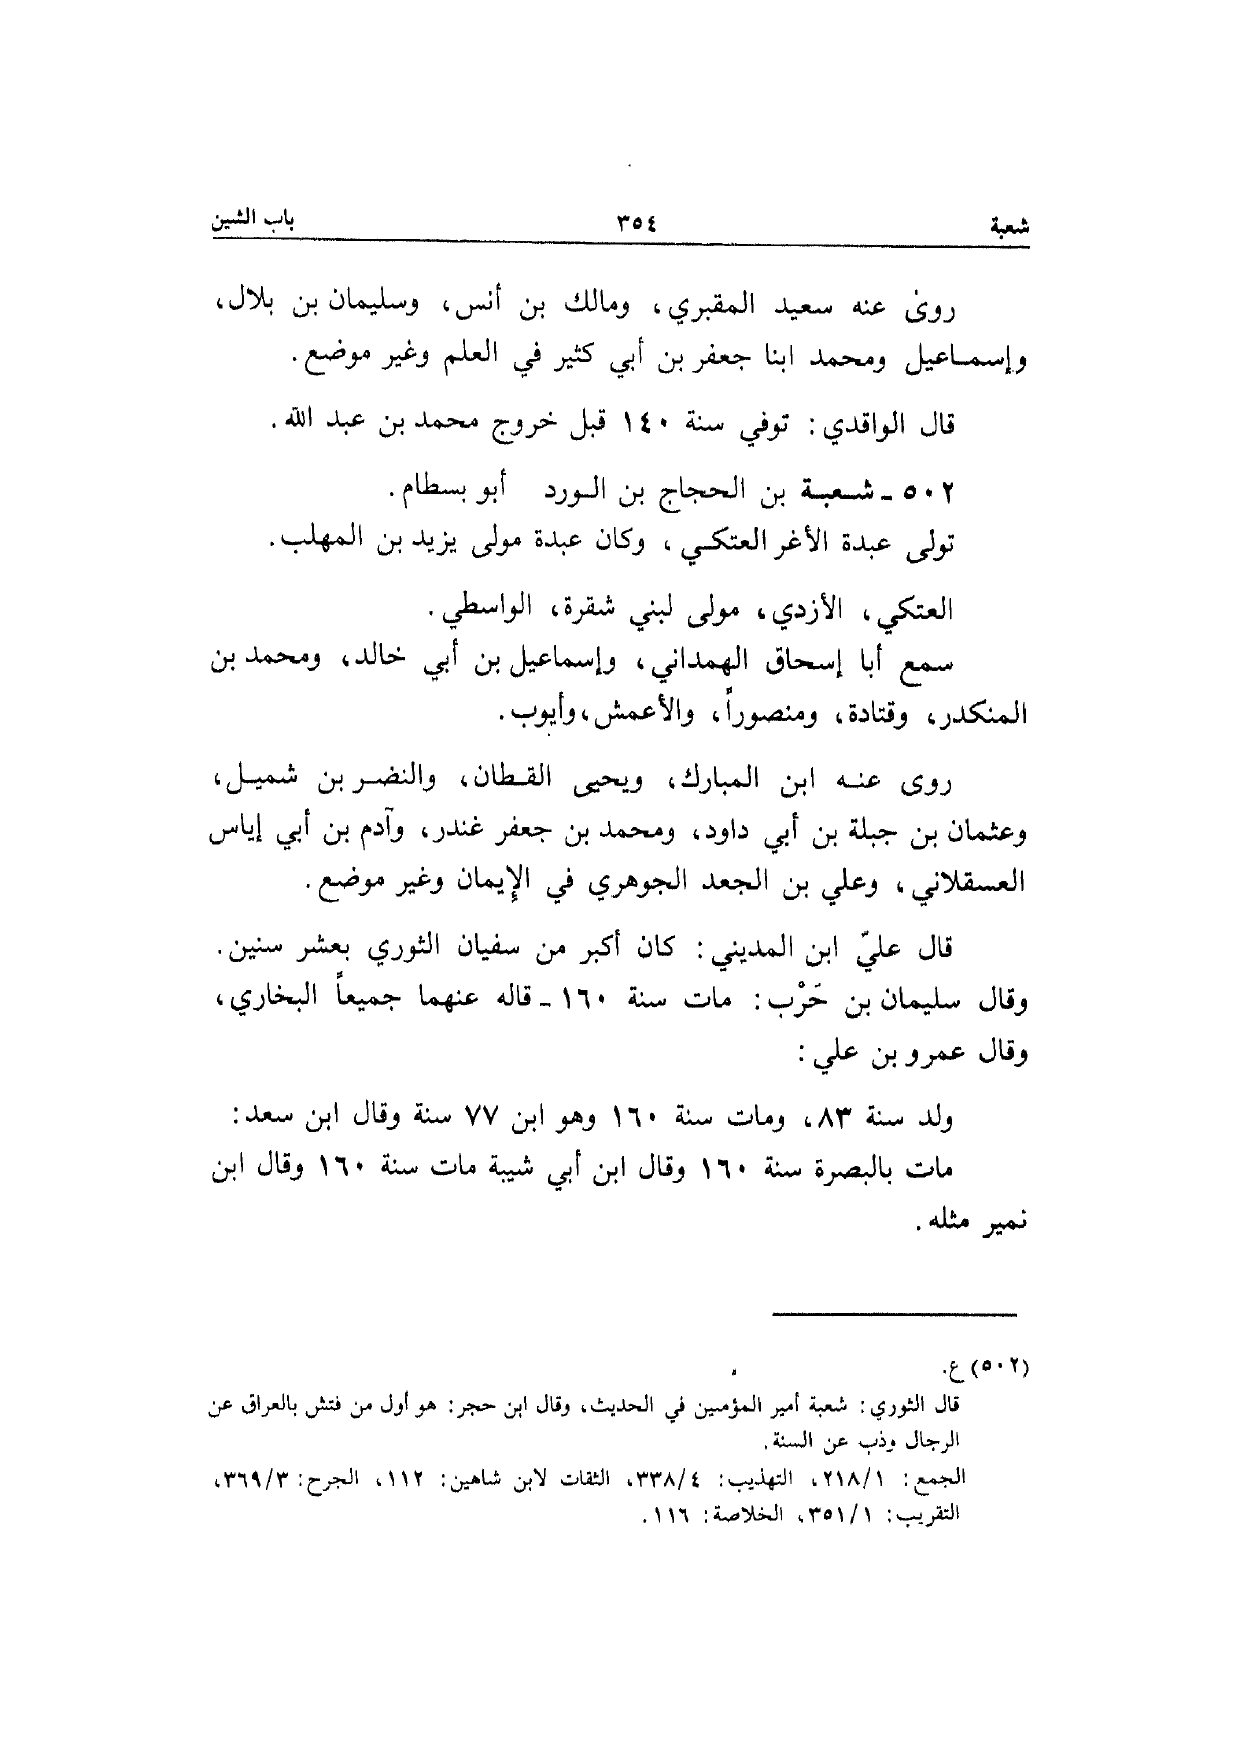 شعبة ٣٥٤ باب الشين
روىٰ عنه سعيد المقبري، ومالك بن أنس، وسليمان بن بلال،
وإسماعيل ومحمد ابنا جعفر بن أبي كثير في العلم وغير موضع.
قال الواقدي: توفي سنة ١٤٠ قبل خروج محمد بن عبد الله.
٥٠٢ ـ شعبة بن الحجاج بن الورد أبو بسطام.
تولى عبدة الأغر العتكي، وكان عبدة مولى يزيد بن المهلب.
العتكي، الأزدي، مولى لبني شقرة، الواسطي.
سمع أبا إسحاق الهمداني، وإسماعيل بن أبي خالد، ومحمد بن
المنكدر، وقتادة، ومنصوراً، والأعمش، وأيوب.
روى عنه ابن المبارك، ويحيى القطان، والنضر بن شميل،
وعثمان بن جبلة بن أبي داود، ومحمد بن جعفر غندر، وآدم بن أبي إياس
العسقلاني، وعلي بن الجعد الجوهري في الإيمان وغير موضع.
قال عليّ ابن المديني: كان أكبر من سفيان الثوري بعشر سنين.
وقال سليمان بن حَرْب: مات سنة ١٦٠ ـ قاله عنهما جميعاً البخاري،
وقال عمرو بن علي:
ولد سنة ٨٣، ومات سنة ١٦٠ وهو ابن ٧٧ سنة وقال ابن سعد:
مات بالبصرة سنة ١٦٠ وقال ابن أبي شيبة مات سنة ١٦٠ وقال ابن
نمير مثله.
(٥٠٢) ع.
قال الثوري: شعبة أمير المؤمنين في الحديث، وقال ابن حجر: هو أول من فتش بالعراق عن
الرجال وذب عن السنة.
الجمع: ٢١٨/١، التهذيب: ٣٣٨/٤، الثقات لابن شاهين: ١١٢، الجرح: ٣٦٩/٣،
التقريب: ٣٥١/١، الخلاصة: ١١٦.